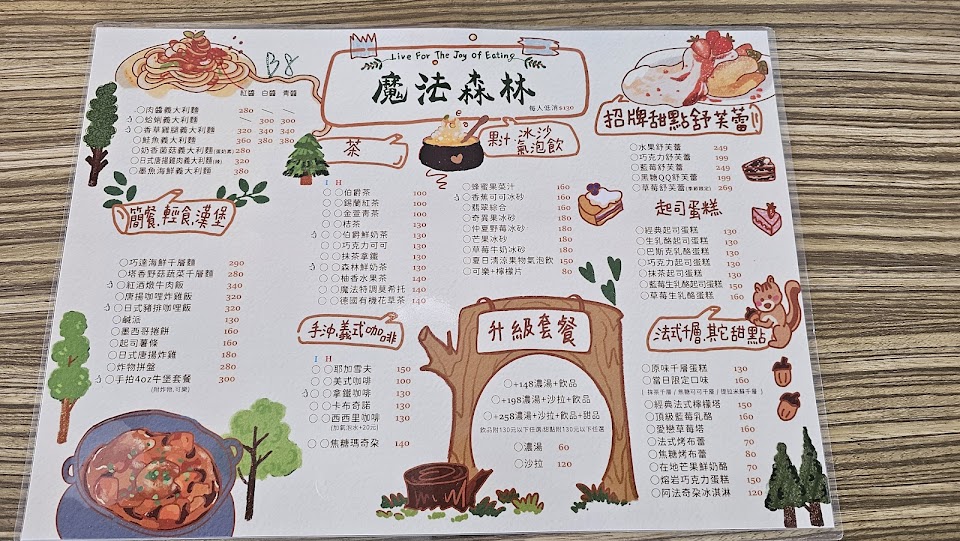 B8
紅醬 白醬 青醬
○肉醬義大利麵 280 ／ ／
○蛤蜊義大利麵 ／ 300 300
○香草雞腿義大利麵 320 340 340
○鮭魚義大利麵 360 380 380
○奶香菌菇義大利麵(蛋奶素) 280
○日式唐揚雞肉義大利麵(辣) 320
○墨魚海鮮義大利麵 380
簡餐.輕食.漢堡
○巧達海鮮千層麵 290
○塔香野菇蔬菜千層麵 280
○紅酒燉牛肉飯 340
○唐揚咖哩炸雞飯 320
○日式豬排咖哩飯 320
○鹹派 130
○墨西哥捲餅 160
○起司薯條 160
○日式唐揚炸雞 180
○炸物拼盤 280
○手拍4oz牛堡套餐 300
(附炸物.可樂)
Live For The Joy of Eating
魔法森林
每人低消$130
茶
I H
○○伯爵茶 100
○○錫蘭紅茶 100
○○金萱青茶 100
○○桔茶 130
○○伯爵鮮奶茶 130
○○巧克力可可 130
○○抹茶拿鐵 130
○○森林鮮奶茶 130
○○柚香水果茶 140
○○魔法特調莫希托 140
○○德國有機花草茶 140
手沖.義式咖啡
I H
○○耶加雪夫 150
○○美式咖啡 100
○○拿鐵咖啡 130
○○卡布奇諾 130
○○西西里咖啡 130
(加氣泡水+20元)
○○焦糖瑪奇朵 140
果汁·冰沙
氣泡飲
○蜂蜜果菜汁 160
○香蕉可可冰砂 160
○翡翠綜合 180
○奇異果冰砂 180
○仲夏野莓冰砂 180
○芒果冰砂 180
○草莓牛奶冰砂 180
○夏日清涼果物氣泡飲 150
○可樂+檸檬片 80
升級套餐
○+148濃湯+飲品
○+198濃湯+沙拉+飲品
○+258濃湯+沙拉+飲品+甜品
飲品附130元以下任選.甜點附130元以下任選
○濃湯 60
○沙拉 120
招牌甜點舒芙蕾
○水果舒芙蕾 249
○巧克力舒芙蕾 199
○藍莓舒芙蕾 249
○黑糖QQ舒芙蕾 199
○草莓舒芙蕾(季節限定) 269
起司蛋糕
○經典起司蛋糕 130
○生乳酪起司蛋糕 130
○巴斯克乳酪蛋糕 130
○巧克力起司蛋糕 130
○抹茶起司蛋糕 130
○藍莓生乳酪起司蛋糕 150
○草莓生乳酪蛋糕 160
法式千層.其它甜點
○原味千層蛋糕 130
○當日限定口味 160
( 抹茶千層 / 焦糖可可千層 / 提拉米蘇千層 )
○經典法式檸檬塔 150
○頂級藍莓乳酪 160
○愛戀草莓塔 180
○法式烤布蕾 70
○焦糖烤布蕾 80
○在地芒果鮮奶酪 70
○熔岩巧克力蛋糕 150
○阿法奇朵冰淇淋 120